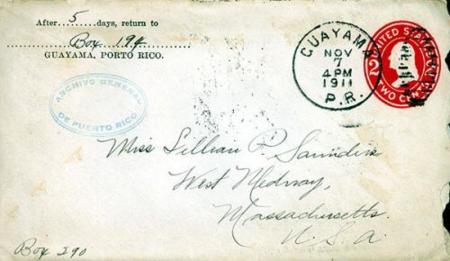 After 5 days, return to
Box 194
GUAYAMA, PORTO RICO.
GUAYAMA
NOV
7
4 PM
1911
P.R.
UNITED STATES
2
TWO CENTS
ARCHIVO GENERAL
DE PUERTO RICO
Miss Lillian P. Saunders
West Medway,
Massachusetts.
U.S.A.
Box 290